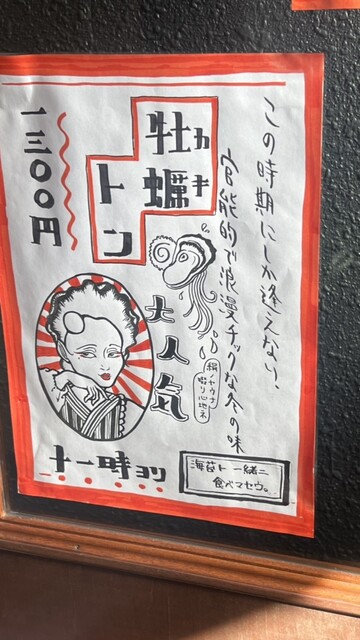 この時期にしか逢えない、
官能的で浪漫チックな冬の味
牡蠣
カキ
トン
一三〇〇円
大人気
絹ノヤウナ
啜リ心地ネ
十一時ヨリ
海苔ト一緒ニ
食ベマセウ。